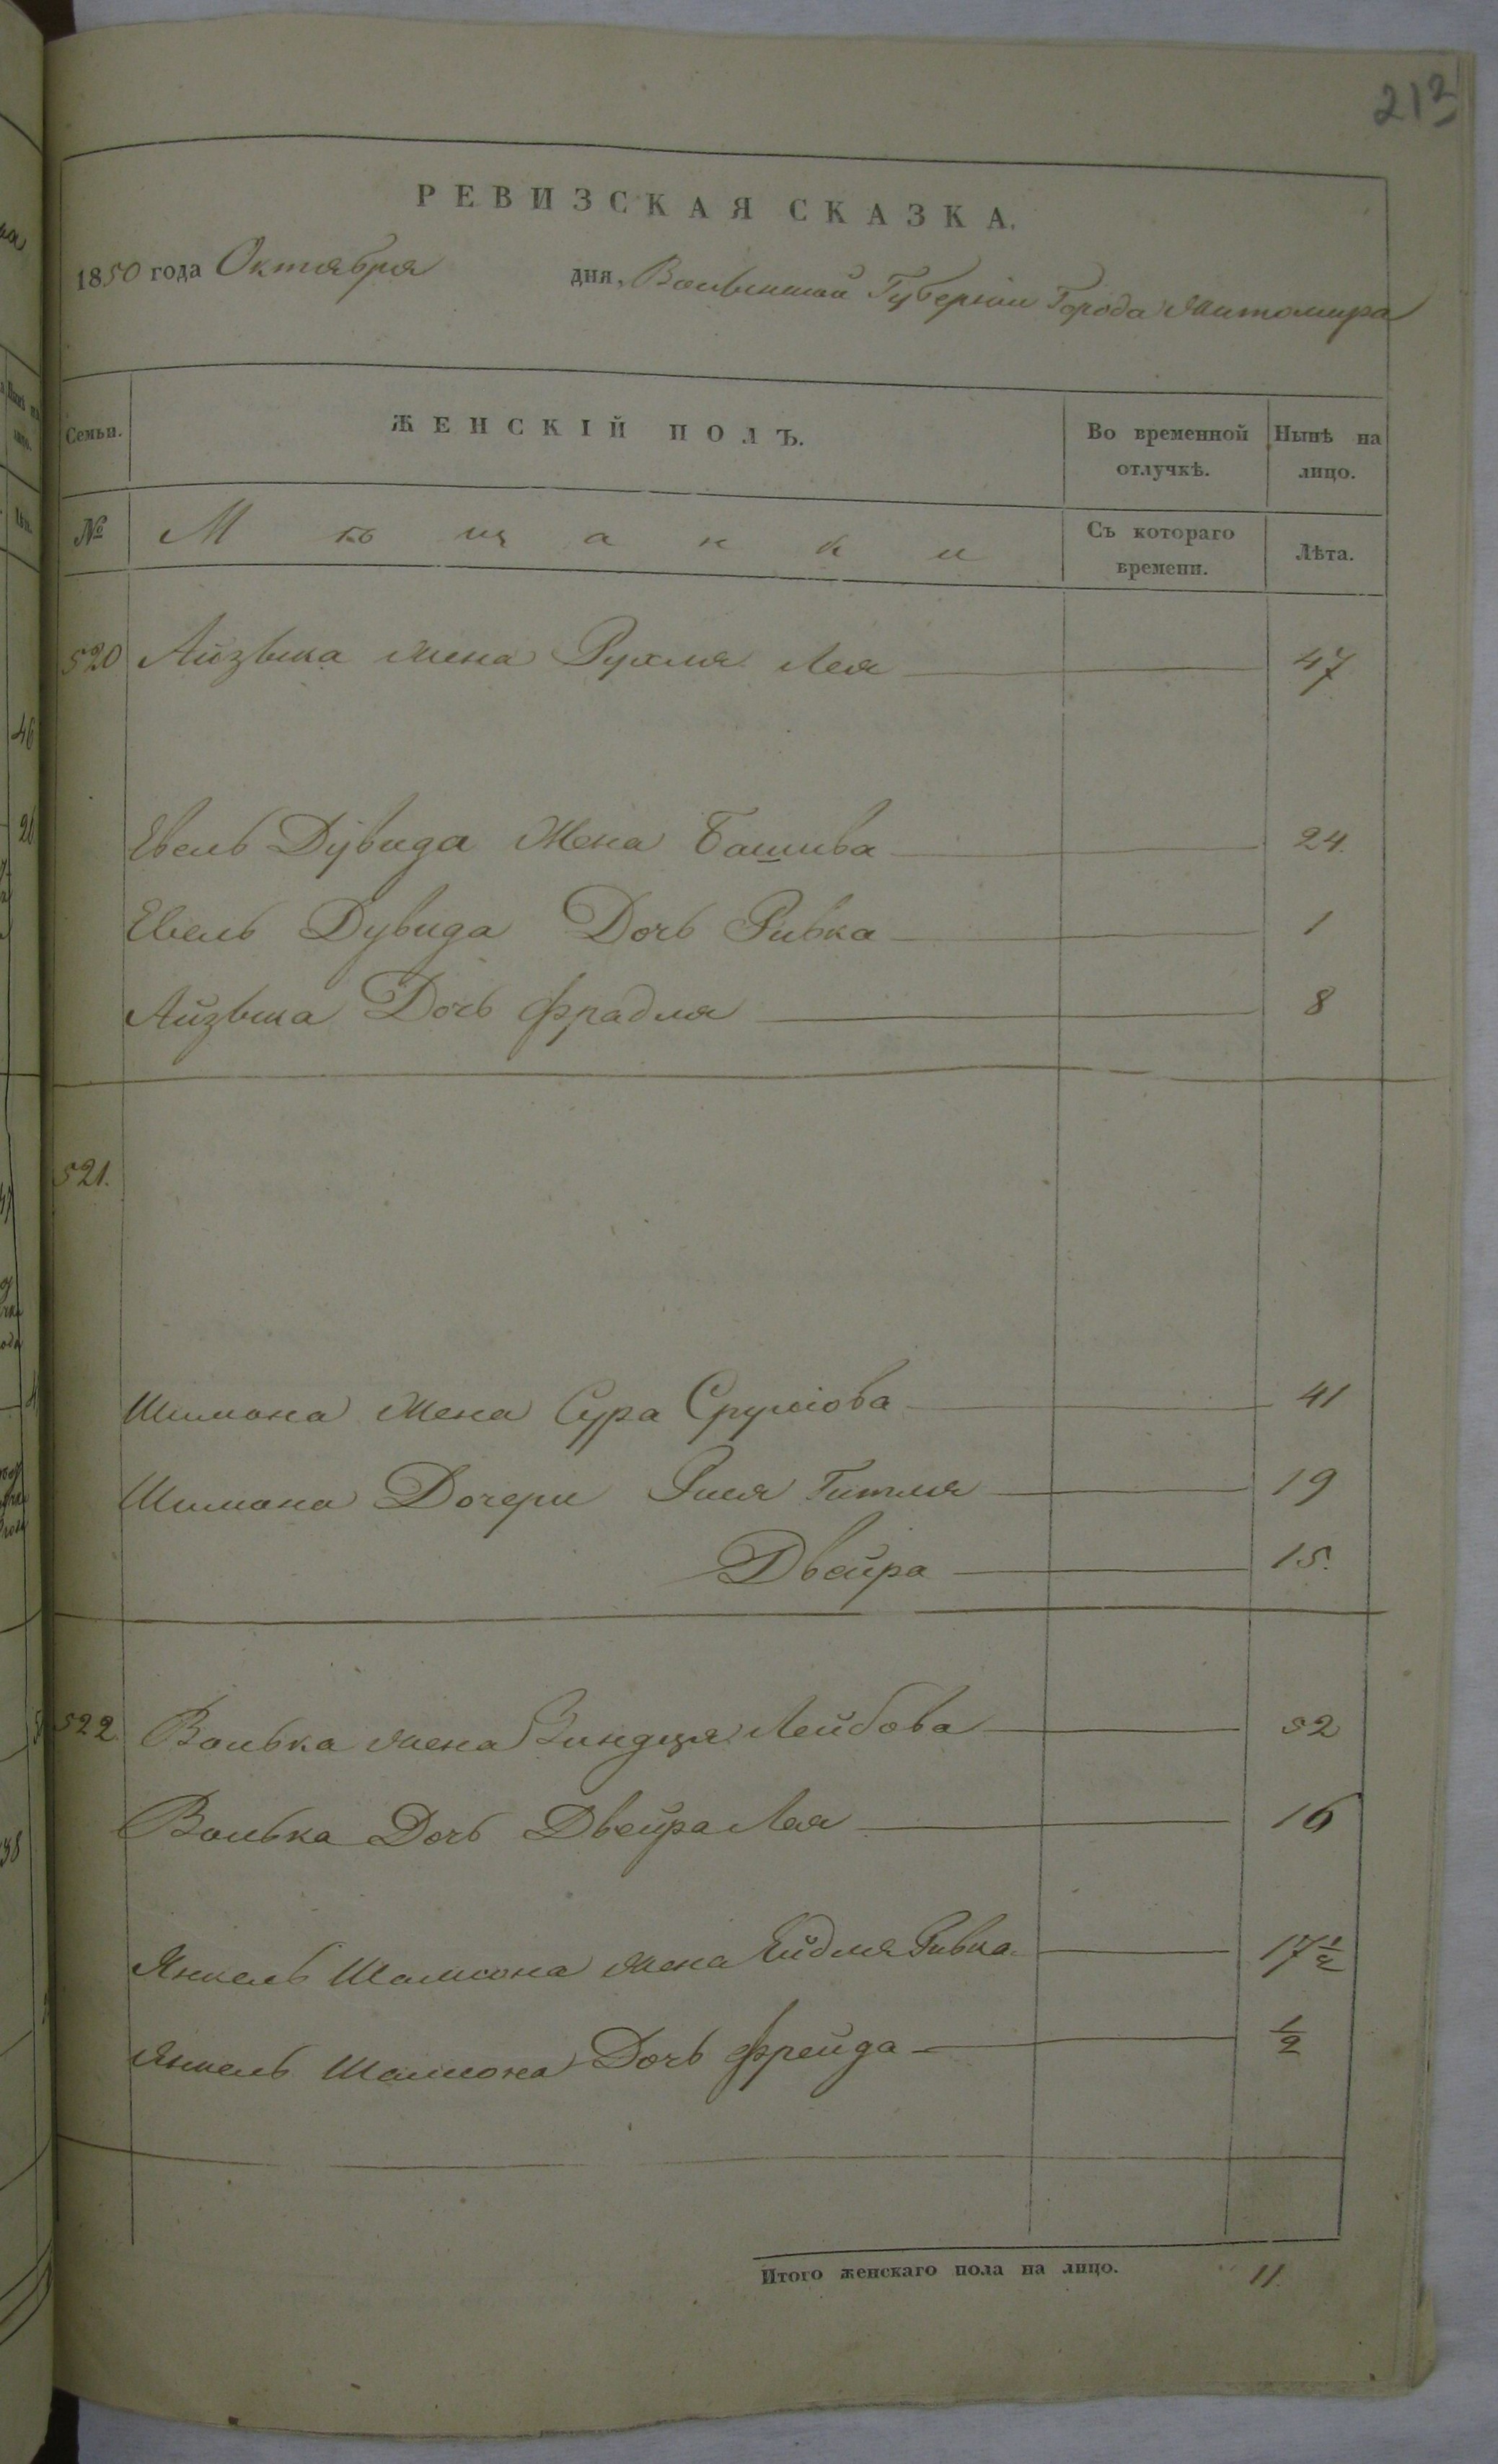 213
РЕВИЗСКАЯ СКАЗКА.
1850 года Октября дня, Волынской Губерніи Города Житомира
Семьи. ЖЕНСКІЙ ПОЛЪ. Во временной отлучкѣ. Нынѣ на лицо.
№ Мѣщанки Съ котораго времени. Лѣта.
520 Айзыка жена Рухля Лея 47
Евель Дувида Жена Башива 24.
Евель Дувида Дочь Ривка 1
Айзыка Дочь Фрадля 8
521.
Шимона жена Сура Срулiова 41
Шимона Дочери Рися Гитля 19
Двейра 15.
522. Волька жена Зиндля Лейбова 52
Волька Дочь Двейра Лея 16
Янкель Шамсона жена Ейдля Ривка 17 1/2
Янкель Шамсона Дочь Фрейда 1/2
Итого женскаго пола на лицо. 11.